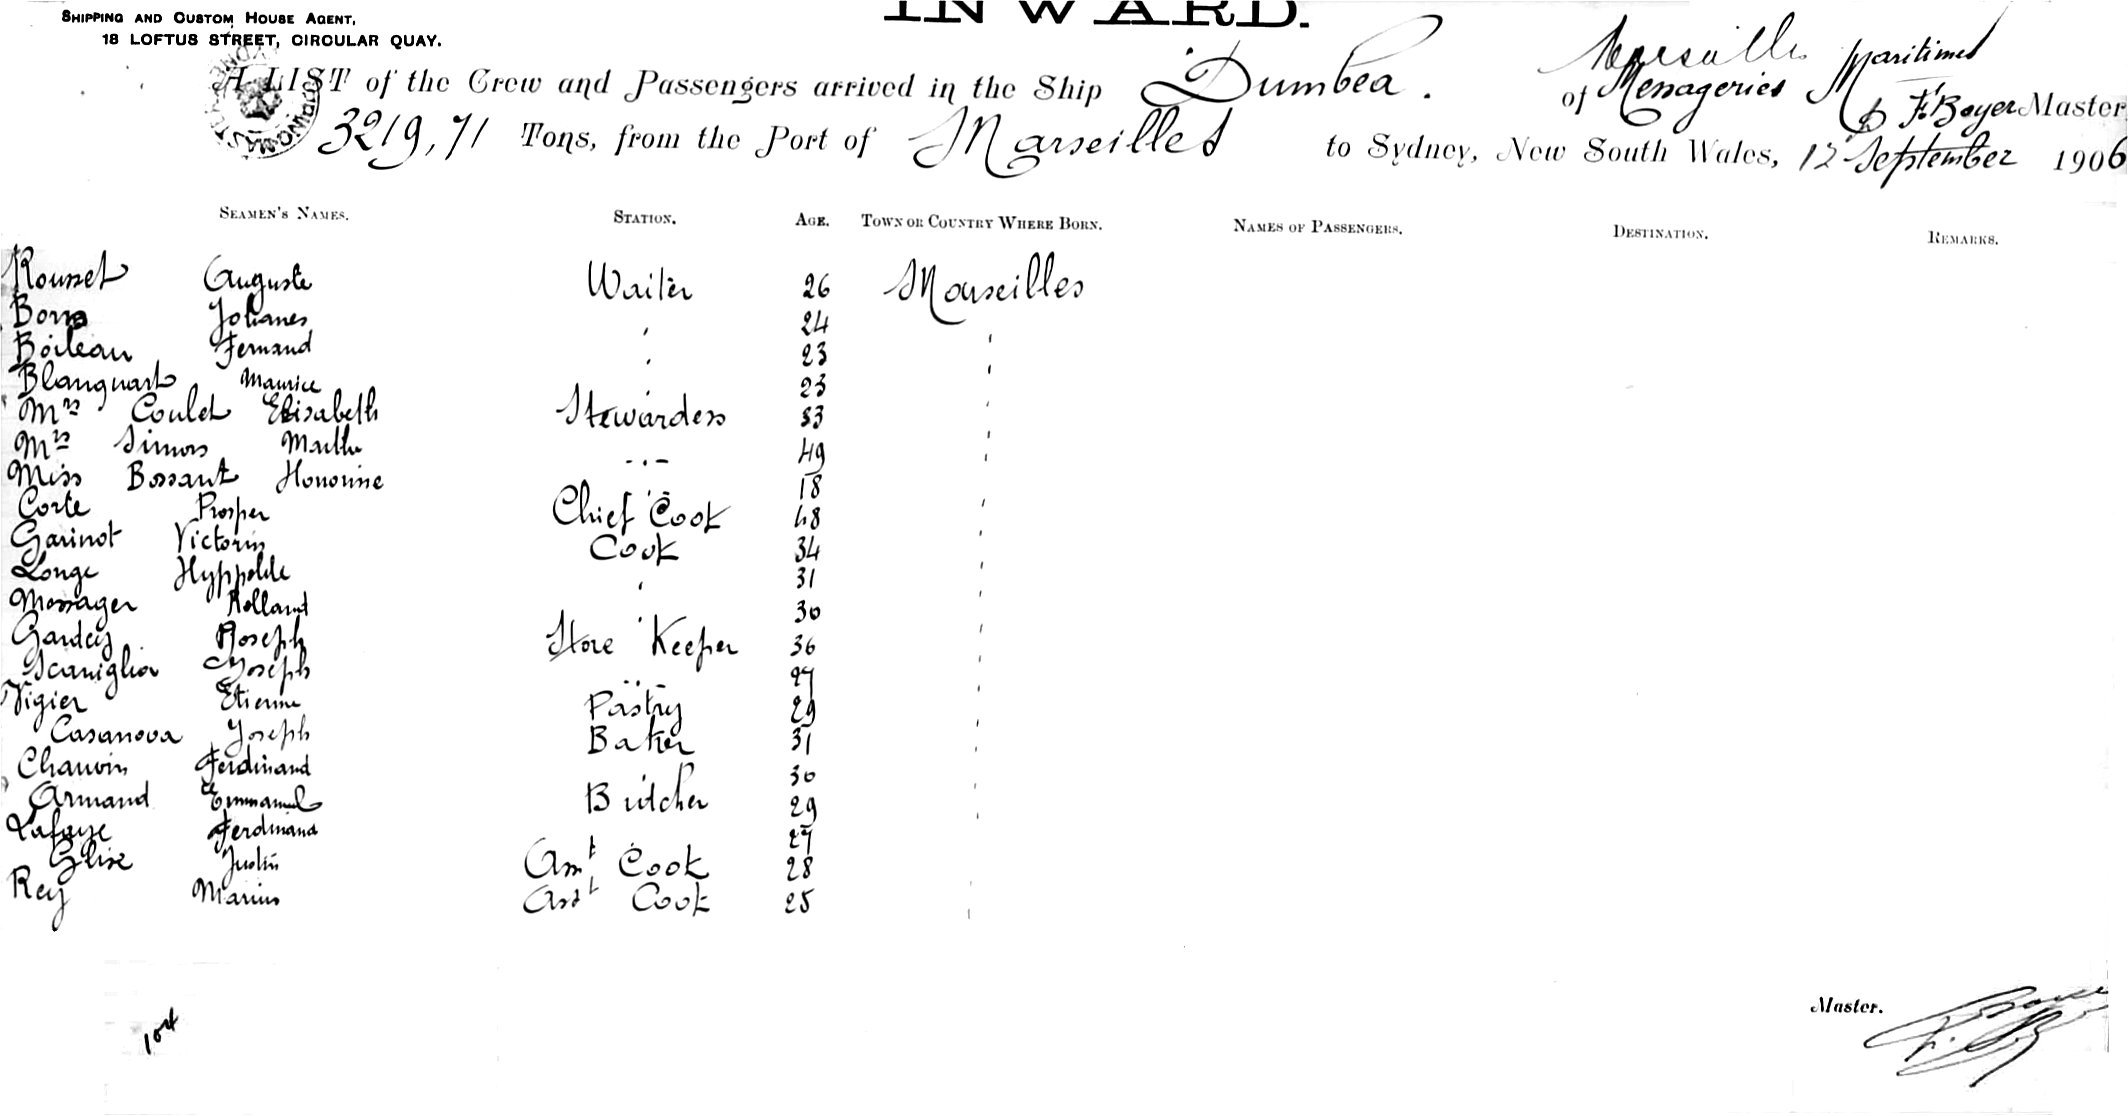 SHIPPING AND CUSTOM HOUSE AGENT,
18 LOFTUS STREET, CIRCULAR QUAY.
INWARD.
A LIST of the Crew and Passengers arrived in the Ship Dumbea . of Marseilles Messageries Maritimes F. Boyer Master
3219,71 Tons, from the Port of Marseilles to Sydney, New South Wales, 12 September 1906
SEAMEN'S NAMES. STATION. AGE. TOWN OR COUNTRY WHERE BORN. NAMES OF PASSENGERS. DESTINATION. REMARKS.
Rousset Auguste Waiter 26 Marseilles
Johanes ' 24 '
Boileau Fernand ' 23 '
Blanquart Maurice ' 23
Mrs Coulet Elisabeth Stewardess 33 '
Mrs Simon Marthe -.- 49 '
Miss Bossant Honorine 18
Corte Prosper Chief Cook 48 '
Garinot Victorin Cook 34 '
Longe Hyppolite ' 31 '
Messager Rolland ' 30
Gardey Joseph Store Keeper 36 '
Scaniglia Joseph 27 '
Vigier Etienne Pastry 29 '
Casanova Joseph Baker 31 '
Chauvin Ferdinand ' 30 '
Armand Emmanuel Butcher 29 '
Lafaye Ferdinand 27
Glise Justin Asst Cook 28 '
Rey Marius Asst Cook 25 '
104
Master. F. Boyer